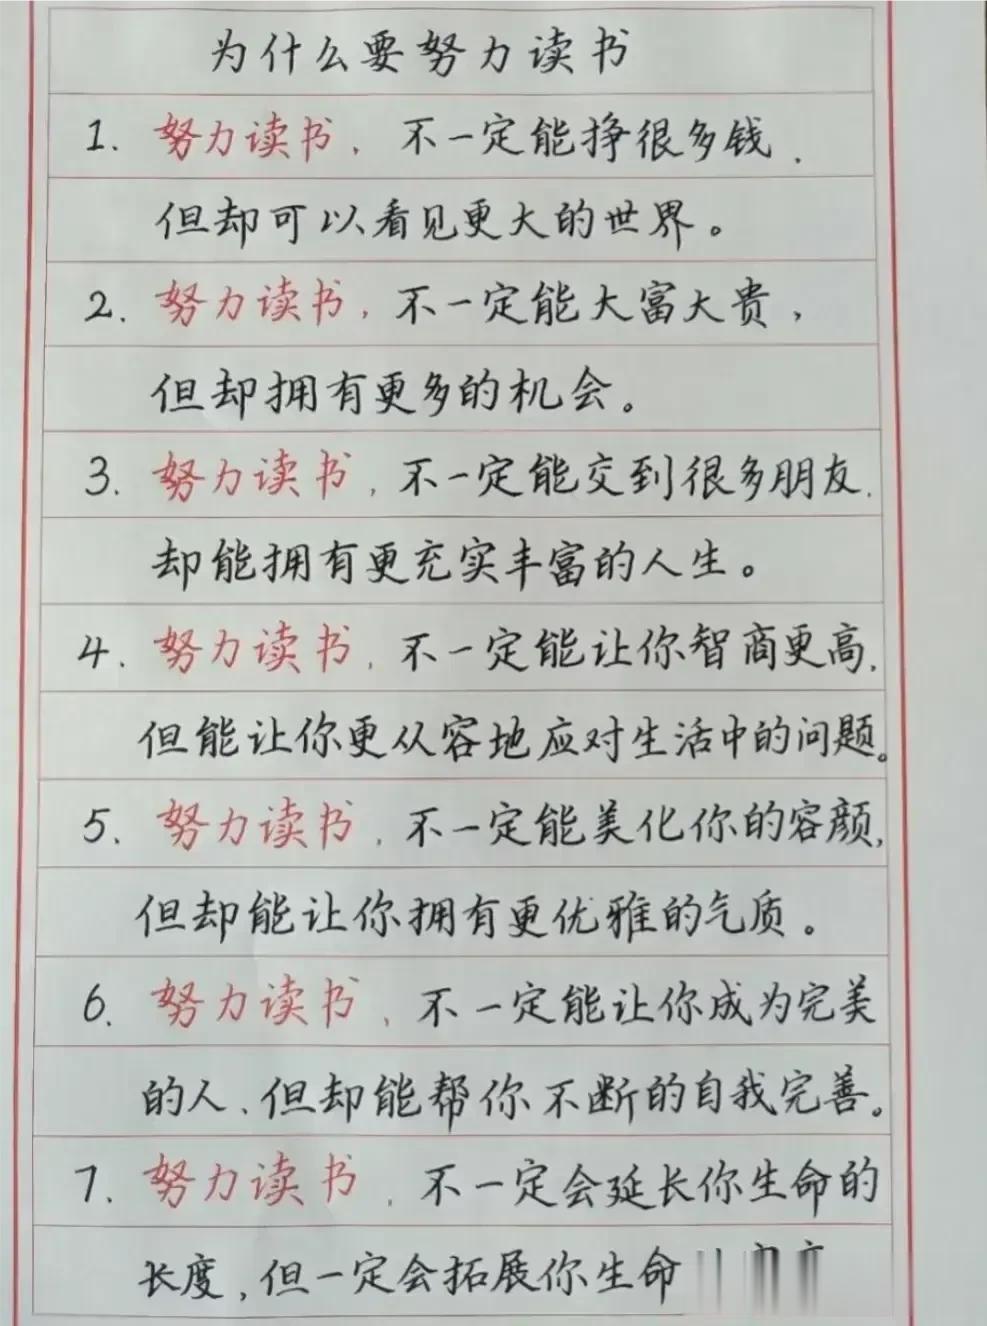 为什么要努力读书
1. 努力读书，不一定能挣很多钱，
但却可以看见更大的世界。
2. 努力读书，不一定能大富大贵，
但却拥有更多的机会。
3. 努力读书，不一定能交到很多朋友，
却能拥有更充实丰富的人生。
4. 努力读书，不一定能让你智商更高，
但能让你更从容地应对生活中的问题。
5. 努力读书，不一定能美化你的容颜，
但却能让你拥有更优雅的气质。
6. 努力读书，不一定能让你成为完美
的人、但却能帮你不断的自我完善。
7. 努力读书，不一定会延长你生命的
长度，但一定会拓展你生命